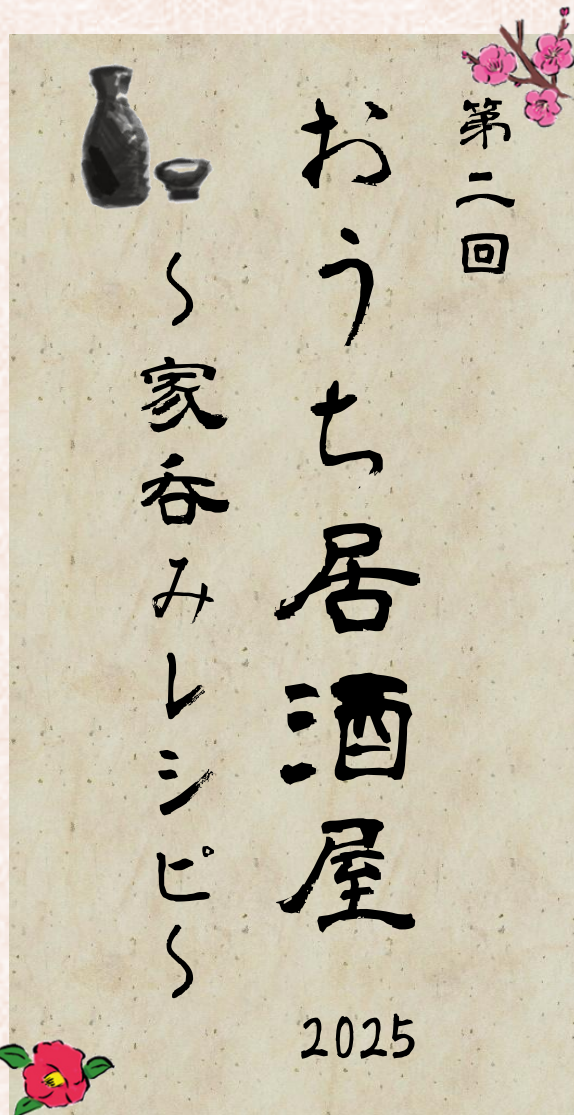 第二回
おうち居酒屋
2025
〜家呑みレシピ〜